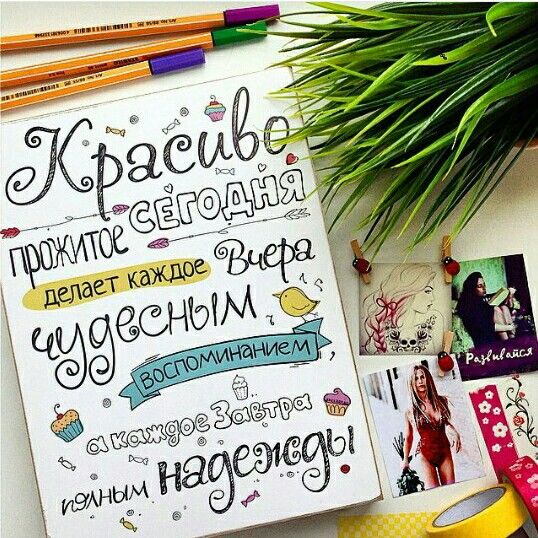 Красиво
прожитое СЕГОДНЯ
делает каждое Вчера
чудесным
воспоминанием,
а каждое Завтра
полным надежды
Развивайся